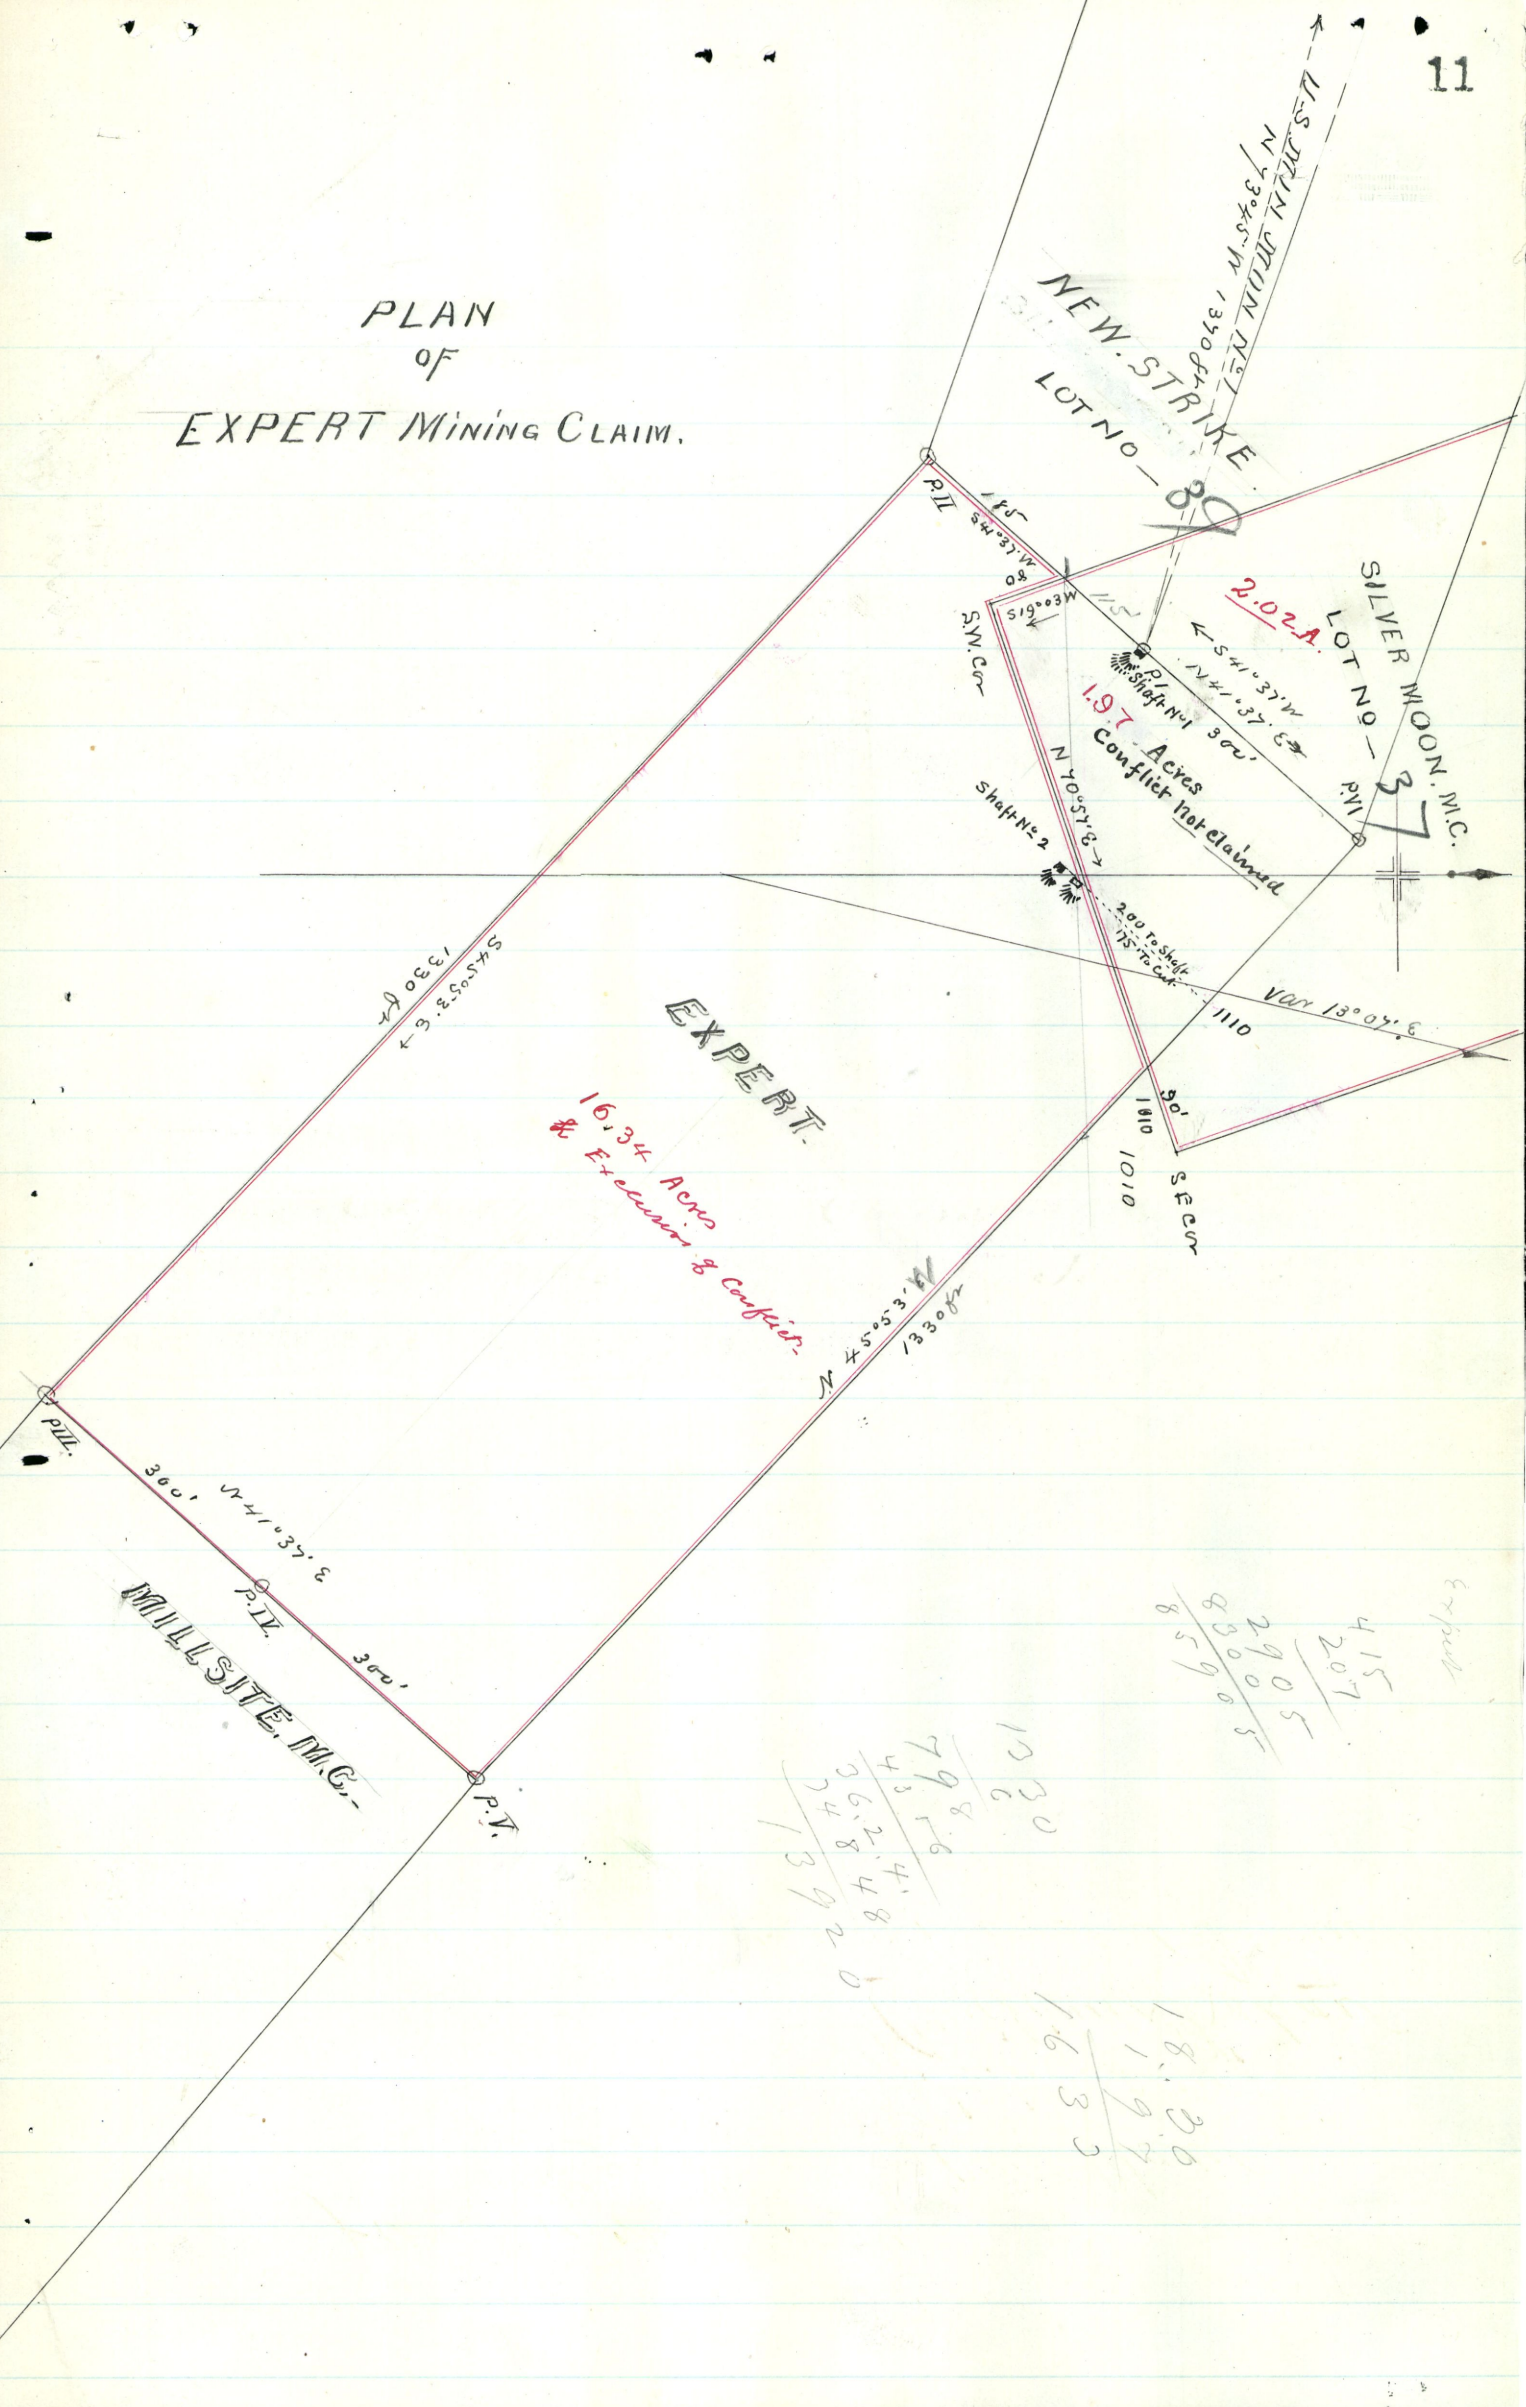 11
PLAN
OF
EXPERT MINING CLAIM.
U.S. MIN MON No 1
N 73°45' W 1390 ft
NEW. STRIKE.
LOT NO - 39
SILVER MOON. M.C.
LOT NO - 37
P.II
185
S41°37'W
80
S19°03W
115'
S.W. Cor
P.I
Shaft No 1
2.02 A.
← S 41°37' W
N 41°37' E →
300'
P.VI
1.97 Acres
Conflict Not Claimed
N 70°57' E →
Shaft No 2
200 To Shaft
175' To Cut
1110
Var 13°07' E
90'
1010
1010
S E Cor
S 45°05 3' E →
1330 ft
EXPERT.
16.34 Acres
Exclusion of Conflict-
N. 45°53' W
1330 ft
P.III.
300'
N 41°37' E
P.IV.
300'
P.V.
MILLSITE. M.C.-
415
207
2905
8300
85905
1330
6
798
43.56
36.2.4.
34848
13920
18.30
1.97
1633